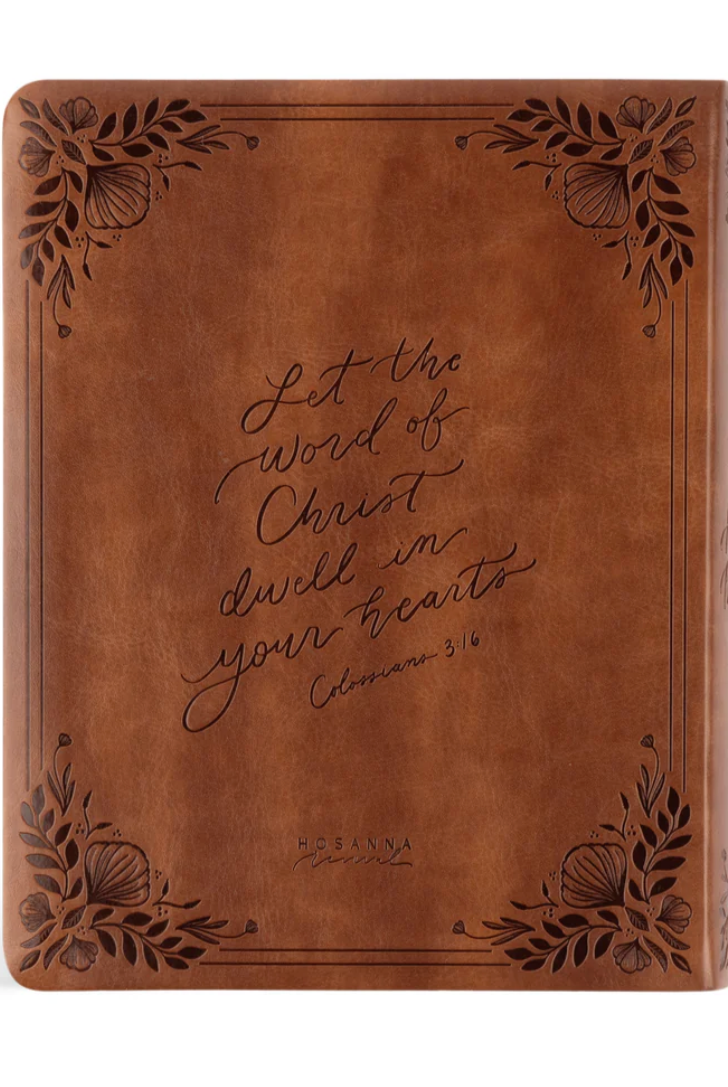 Let the
word of
Christ
dwell in
your hearts
Colossians 3:16
HOSANNA
Revival